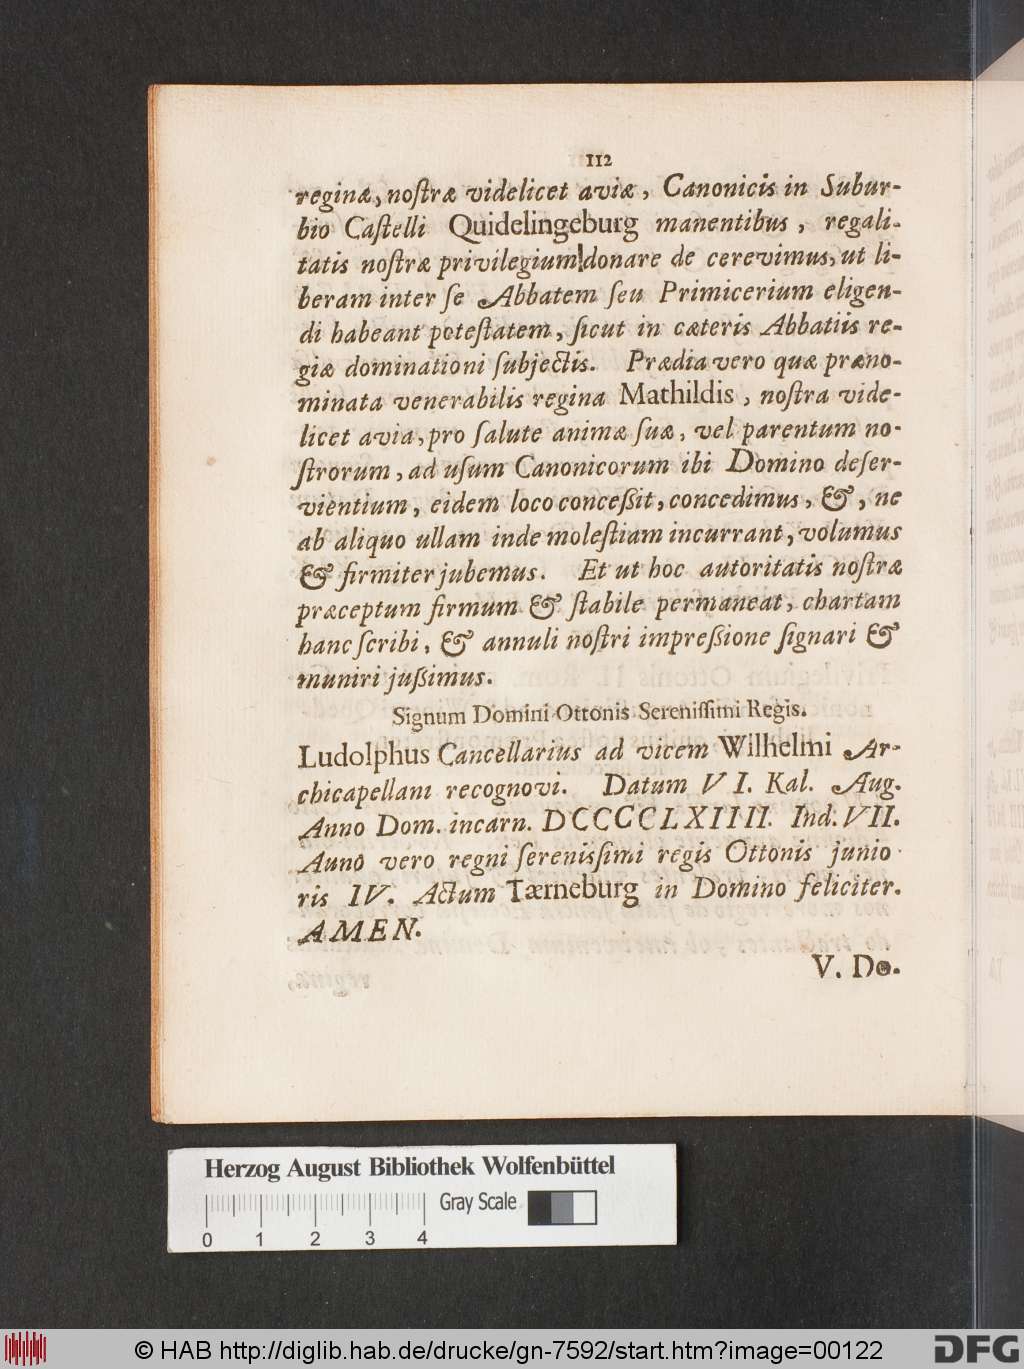 112
reginæ, noſtræ videlicet aviæ, Canonicis in Subur-
bio Caſtelli Quidelingeburg manentibus, regali-
tatis noſtræ privilegium donare decrevimus, ut li-
beram inter ſe Abbatem ſeu Primicerium eligen-
di habeant poteſtatem, ſicut in cæteris Abbatiis re-
giæ dominationi ſubjectis. Prædia vero quæ præno-
minata venerabilis regina Mathildis, noſtra vide-
licet avia, pro ſalute animæ ſuæ, vel parentum no-
ſtrorum, ad uſum Canonicorum ibi Domino deſer-
vientium, eidem loco conceſſit, concedimus, &, ne
ab aliquo ullam inde moleſtiam incurrant, volumus
& firmiter jubemus. Et ut hoc autoritatis noſtræ
præceptum firmum & ſtabile permaneat, chartam
hanc ſcribi, & annuli noſtri impreſſione ſignari &
muniri juſſimus.
Signum Domini Ottonis Sereniſſimi Regis.
Ludolphus Cancellarius ad vicem Wilhelmi Ar-
chicapellani recognovi. Datum VI. Kal. Aug.
Anno Dom. incarn. DCCCCLXIIII. Ind. VII.
Auno vero regni ſereniſſimi regis Ottonis junio
ris IV. Actum Tærneburg in Domino feliciter.
AMEN.
V. Do.
Herzog August Bibliothek Wolfenbüttel
Gray Scale
0 1 2 3 4
© HAB http://diglib.hab.de/drucke/gn-7592/start.htm?image=00122
DFG